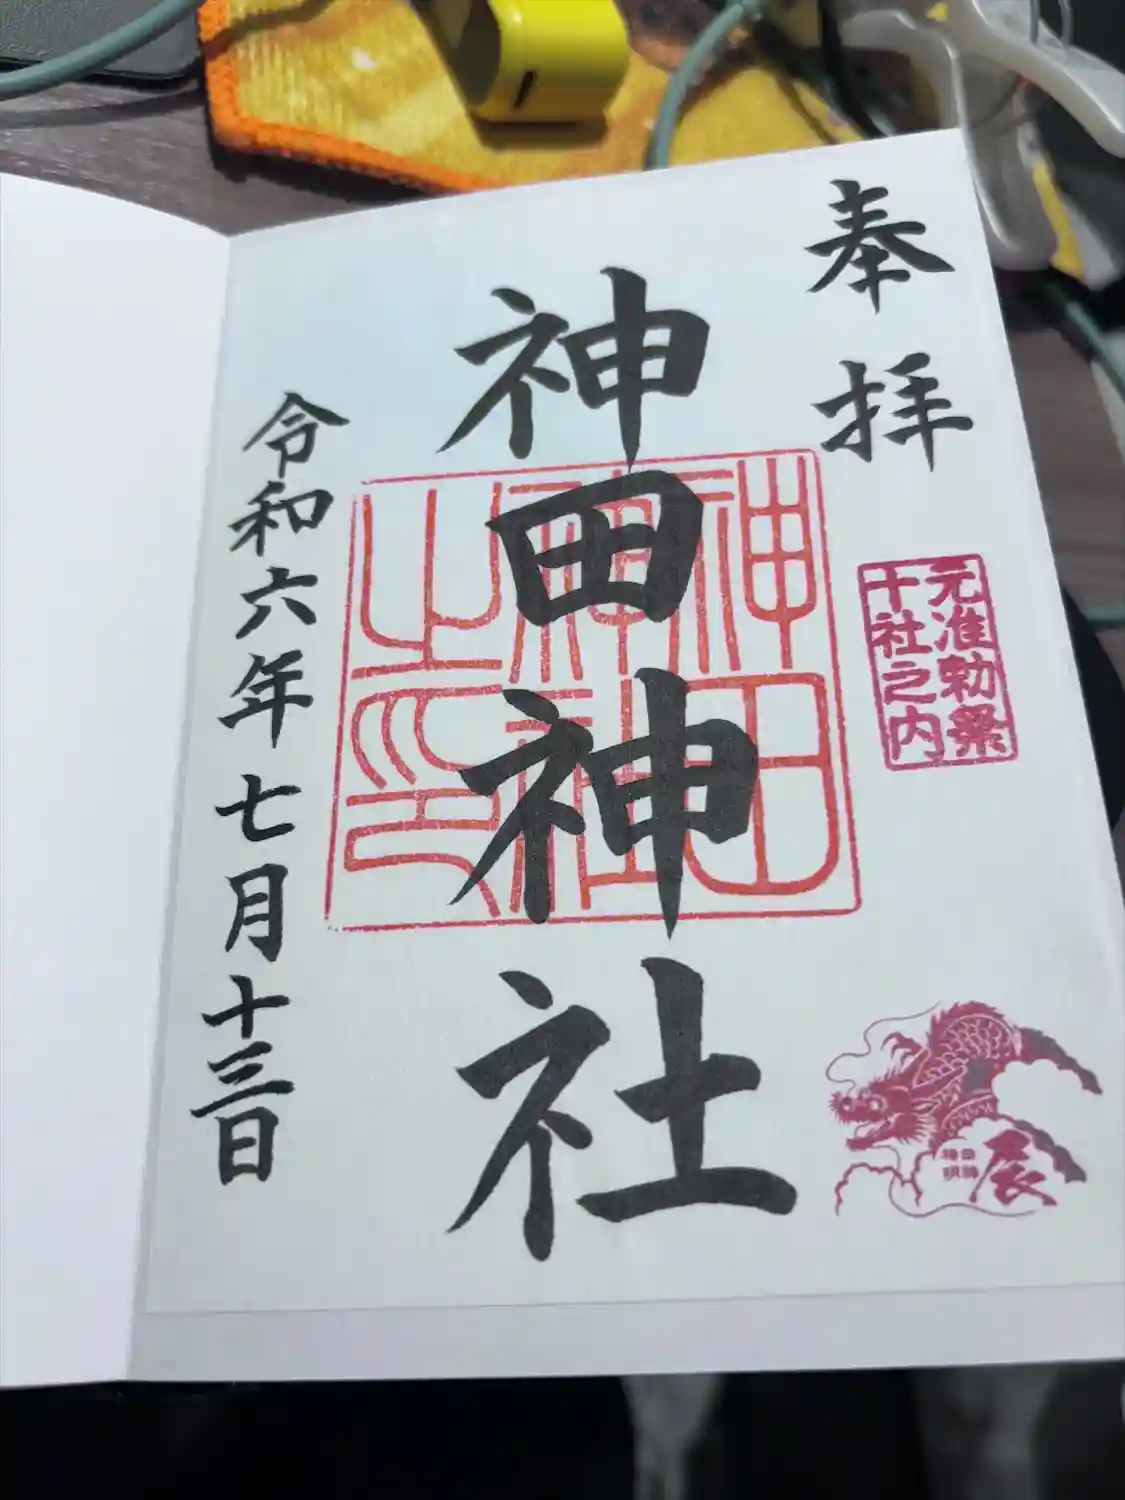 奉拝
元准勅祭
十社之内
神田神社
神田
神社
之印
辰
神田
明神
令和六年七月十三日